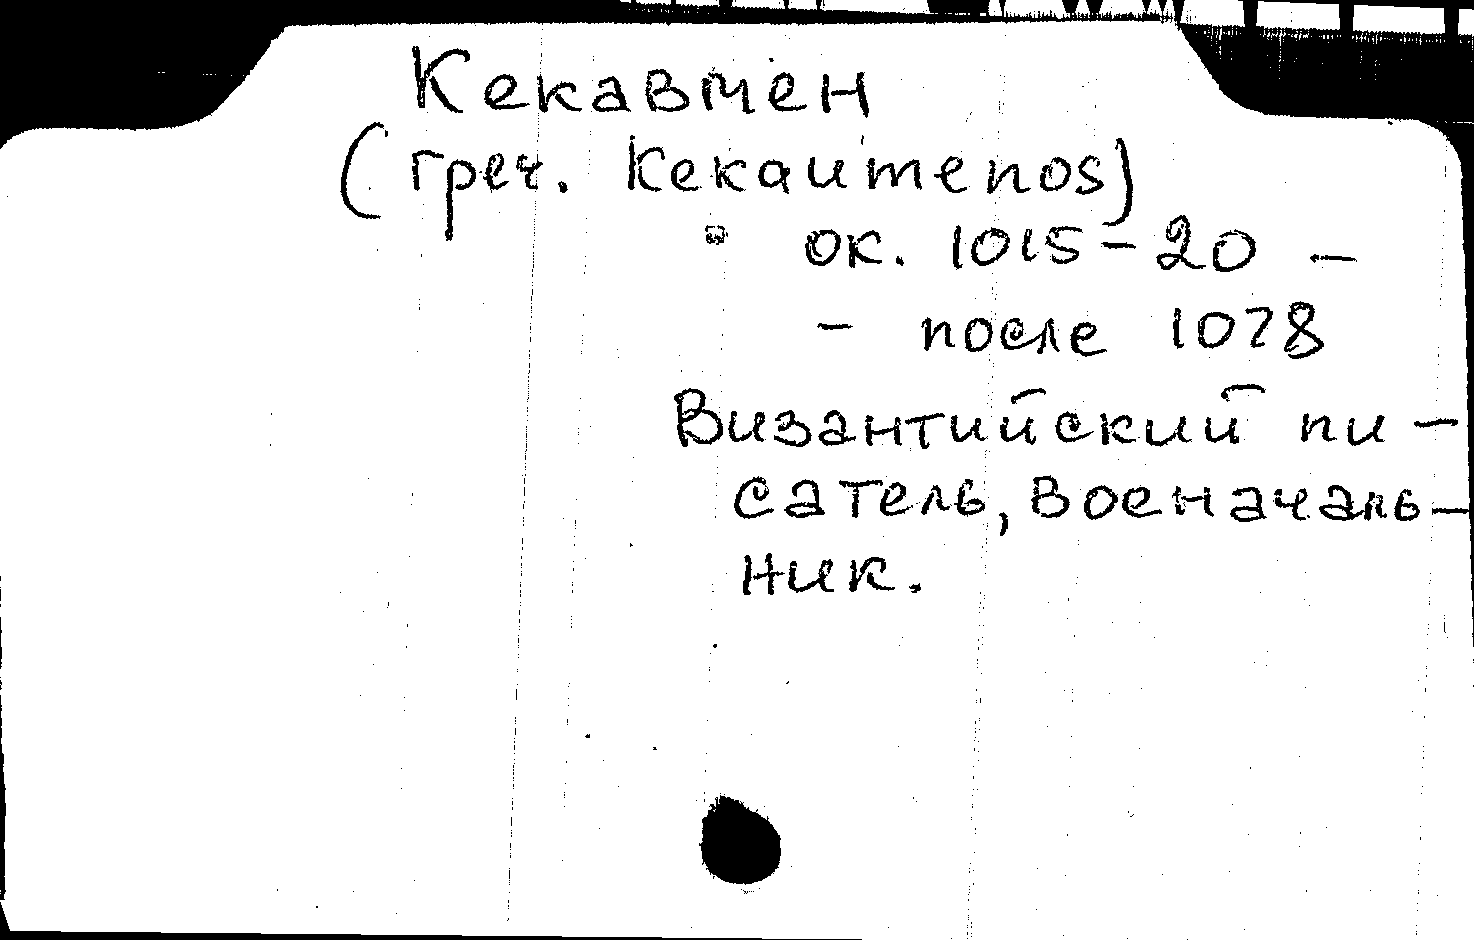 Кекавмен
(греч. Kekaumenos)
ок. 1015-20 -
- после 1078
Византийский пи-
сатель, военачаль-
ник.